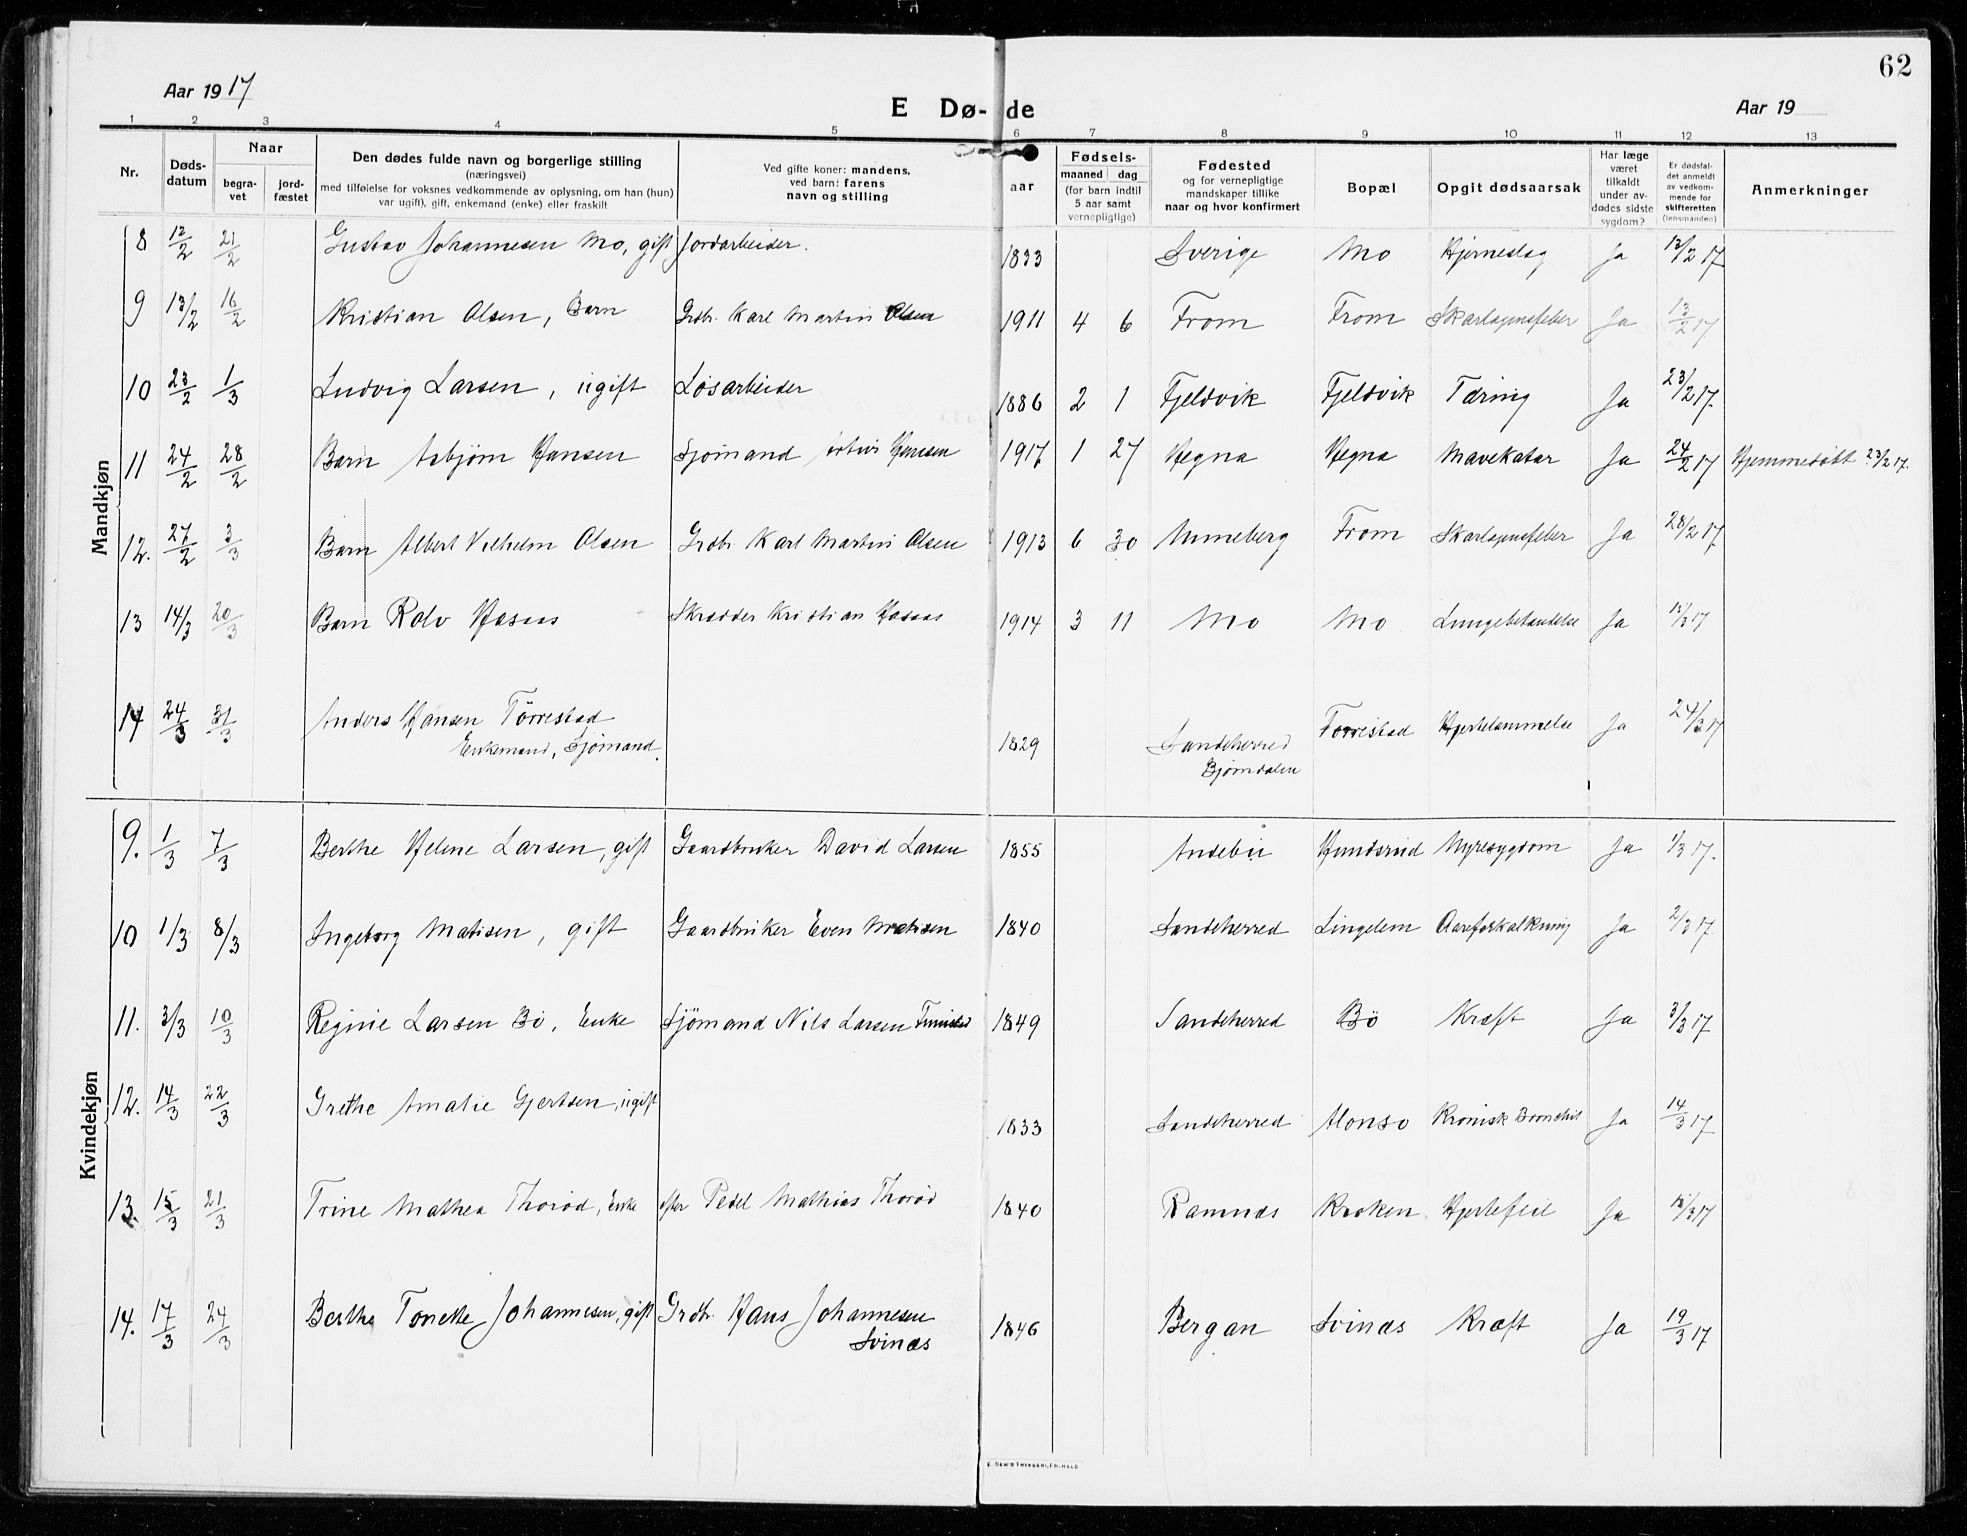 62
Aar 1917
E Dø- de
Aar 19
1 2 3 4 5 6 7 8 9 10 11 12 13
Nr.
Døds-
datum
Naar
begra-
vet
jord-
fæstet
Den dødes fulde navn og borgerlige stilling
(næringsvei)
med tilføielse for voksnes vedkommende av oplysning, om han (hun)
var ugift, gift, enkemand (enke) eller fraskilt
Ved gifte koner: mandens,
ved barn: farens
navn og stilling
aar
Fødsels-
maaned dag
(for barn indtil
5 aar samt
vernepligtige)
Fødested
og for vernepligtige
mandskaper tillike
naar og hvor konfirmert
Bopæl
Opgit dødsaarsak
Har læge
været
tilkaldt
under av-
dødes sidste
sygdom?
Er dødsfal-
det anmeldt
av vedkom-
mende for
skifteretten
(lensmanden)
Anmerkninger
Mandkjøn
8 12/2 21/2 Gustav Johannesen Mo, gift Jordarbeider. 1833 Sverige Mo Hjerneslag Ja 13/2 17
9 13/2 16/2 Kristian Olsen, Barn Grdbr. Karl Martin Olsen 1911 4 6 From From Skarlagensfeber Ja 13/2 17
10 23/2 1/3 Ludvig Larsen, ugift Løsarbeider 1886 2 1 Fjeldvik Fjeldvik Tæring Ja 23/2 17.
11 24/2 28/2 Barn Asbjørn Hansen Sjømand Hansen 1917 1 27 Hegna Hegna Mavekatar Ja 24/2 17 Hjemmedøbt 23/2 17.
12. 27/2 3/3 Barn Albert Vilhelm Olsen Grdbr Karl Martin Olsen 1913 6 30 Unneberg From Skarlagensfeber Ja 28/2 17
13 14/3 20/3 Barn Rolv Hasaas Skrædder Kristian Hasaas 1914 3 11 Mo Mo Lungebetændelse Ja 15/3 17
14 24/3 31/3 Anders Hansen Törrestad
Enkemand, Sjömand. 1829 Sandeherred
Bjørndalen Torrestad Hjertelammelse Ja 24/3 17
Kvindekjøn
9. 1/3 7/3 Berthe Helene Larsen, gift Gaardbruker David Larsen 1855 Andebu Hundsrud Nyresygdom Ja 1/3 17.
10 1/3 8/3 Ingeborg Matisen, gift Gaardbruker Even Matisen 1840 Sandeherred Lingelem Aareforkalkning Ja 2/3 17.
11. 3/3 10/3 Regine Larsen Bö, Enke Sjömand Nils Larsen 1849 Sandeherred Bö Kræft Ja 3/3 17
12. 14/3 22/3 Grethe Amalie Gjertsen, ugift 1833 Sandeherred Alonso Kronisk Bronchit Ja 14/3 17
13. 15/3 21/3 Trine Mathea Thorød, Enke efter Peder Mathias Thorød 1840 Ramnæs Kroken Hjertefeil Ja 15/3 17
14. 17/3 24/3 Berthe Tonette Johannesen, gift Grdbr. Hans Johannesen
Svinæs 1846 Bergan Svinæs Kræft Ja 19/3 17